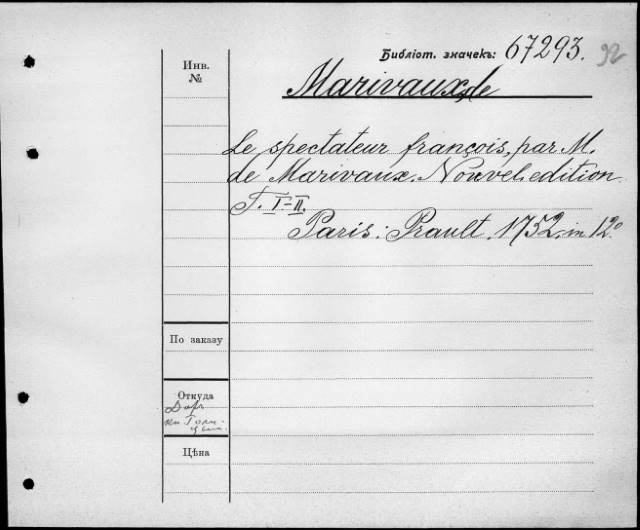 Библіот. значекъ: 67293. 92
Инв.
№
Marivaux, de
Le spectateur françois, par M.
de Marivaux. Nouvel. edition
T. I-II.
Paris: Prault. 1752. in 12°
По заказу
Откуда
Дар
кн. Голи-
цына.
Цѣна